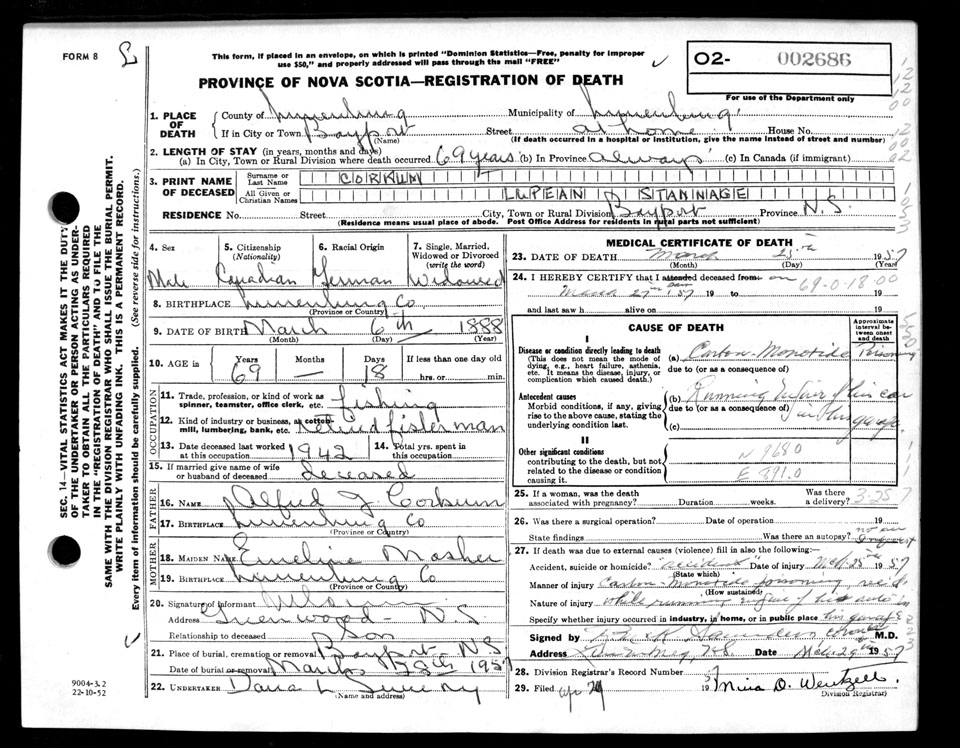 FORM 8
This form, if placed in an envelope, on which is printed "Dominion Statistics—Free, penalty for improper
use $50," and properly addressed will pass through the mail "FREE"
PROVINCE OF NOVA SCOTIA—REGISTRATION OF DEATH
O2- 002686
For use of the Department only
1. PLACE OF DEATH
County of Lunenburg Municipality of Lunenburg
If in City or Town Bayport Street at home House No.
(Name) (If death occurred in a hospital or institution, give the name instead of street and number)
2. LENGTH OF STAY (in years, months and days)
(a) In City, Town or Rural Division where death occurred 69 years (b) In Province always (c) In Canada (if immigrant)
3. PRINT NAME OF DECEASED
Surname or Last Name CORKUM
All Given or Christian Names LUPEAN STANNAGE
RESIDENCE No. Street City, Town or Rural Division Bayport Province N.S.
(Residence means usual place of abode. Post Office Address for residents in rural parts not sufficient)
4. Sex Male
5. Citizenship (Nationality) Canadian
6. Racial Origin German
7. Single, Married, Widowed or Divorced (write the word) Widowed
8. BIRTHPLACE Lunenburg Co
(Province or Country)
9. DATE OF BIRTH March 6th 1888
(Month) (Day) (Year)
10. AGE in Years 69 Months — Days 18 If less than one day old hrs. or min.
OCCUPATION
11. Trade, profession, or kind of work as spinner, teamster, office clerk, etc. fishing
12. Kind of industry or business, as cotton-mill, lumbering, bank, etc. Retired fisherman
13. Date deceased last worked at this occupation 1942
14. Total yrs. spent in this occupation
15. If married give name of wife or husband of deceased deceased
FATHER
16. NAME Alfred J Corkum
17. BIRTHPLACE Lunenburg Co
(Province or Country)
MOTHER
18. MAIDEN NAME Emeline Mosher
19. BIRTHPLACE Lunenburg Co
(Province or Country)
20. Signature of informant
Address Greenwood - N S
Relationship to deceased Son
21. Place of burial, cremation or removal Bayport, N S
Date of burial or removal March 28th 195
22. UNDERTAKER
(Name and address)
MEDICAL CERTIFICATE OF DEATH
23. DATE OF DEATH March 25th 1957
(Month) (Day) (Year)
24. I HEREBY CERTIFY that I attended deceased from: on 69-0-18-00
March 27th 57 19 to 19
and last saw h alive on 19
CAUSE OF DEATH
Approximate interval between onset and death
I
Disease or condition directly leading to death
(This does not mean the mode of dying, e.g., heart failure, asthenia, etc. It means the disease, injury, or complication which caused death.)
(a) Carbon-Monoxide Poisoning
due to (or as a consequence of)
Antecedent causes
Morbid conditions, if any, giving rise to the above cause, stating the underlying condition last.
(b) Running Motor of his car
due to (or as a consequence of) in his garage
(c)
II
Other significant conditions
contributing to the death, but not related to the disease or condition causing it.
N 9680
E 891.0
25. If a woman, was the death associated with pregnancy? Duration weeks. Was there a delivery? 3-25-7
26. Was there a surgical operation? Date of operation 19
State findings Was there an autopsy? no
27. If death was due to external causes (violence) fill in also the following:—
Accident, suicide or homicide? "accident" Date of injury Mch. 25th 1957
(State which)
Manner of injury Carbon Monoxide poisoning
(How sustained)
Nature of injury while running engine of his auto in
Specify whether injury occurred in industry, in home, or in public place his garage
Signed by Saunders M.D.
Address Lunenburg, N.S. Date March 29th 1957
28. Division Registrar's Record Number
29. Filed Apr 1957 Mina D. Wentzell.
Division Registrar
SEC. 14—VITAL STATISTICS ACT MAKES IT THE DUTY OF THE UNDERTAKER OR PERSON ACTING AS UNDERTAKER TO OBTAIN ALL THE PARTICULARS REQUIRED IN THE "REGISTRATION OF DEATH" AND TO FILE THE SAME WITH THE DIVISION REGISTRAR WHO SHALL ISSUE THE BURIAL PERMIT.
WRITE PLAINLY WITH UNFADING INK. THIS IS A PERMANENT RECORD.
Every item of information should be carefully supplied. (See reverse side for instructions.)
9004-3.2
22-10-52